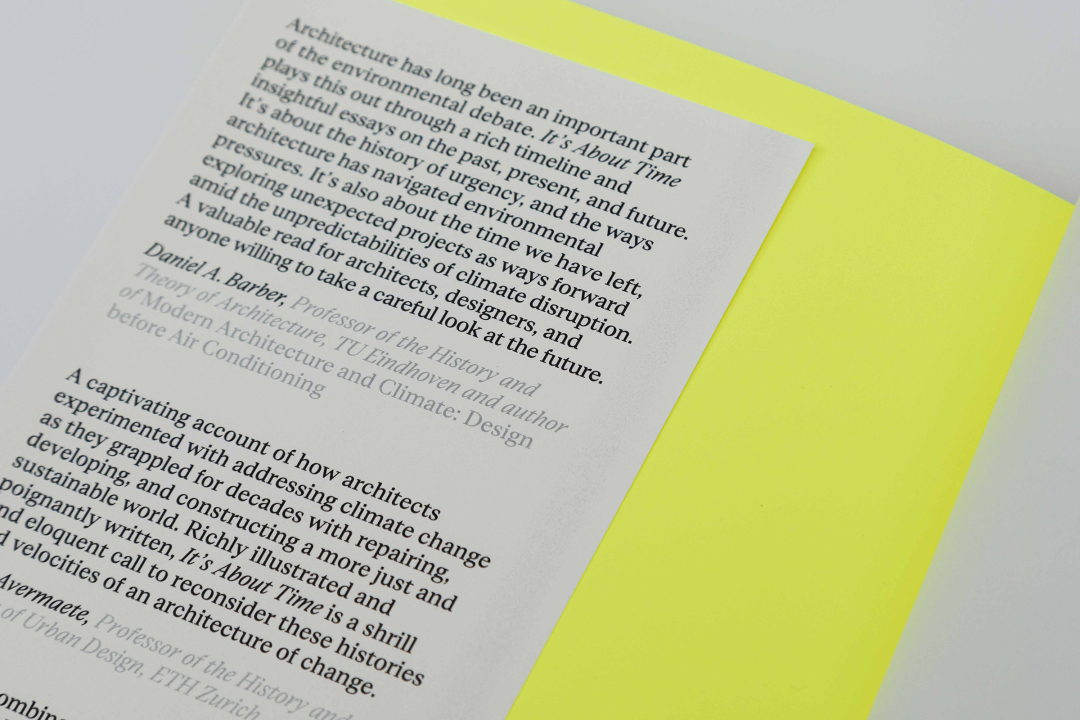 Architecture has long been an important part
of the environmental debate. It's About Time
plays this out through a rich timeline and
insightful essays on the past, present, and future.
It's about the history of urgency, and the ways
architecture has navigated environmental
pressures. It's also about the time we have left,
exploring unexpected projects as ways forward
amid the unpredictabilities of climate disruption.
A valuable read for architects, designers, and
anyone willing to take a careful look at the future.
Daniel A. Barber, Professor of the History and
Theory of Architecture, TU Eindhoven and author
of Modern Architecture and Climate: Design
before Air Conditioning
A captivating account of how architects
experimented with addressing climate change
as they grappled for decades with repairing,
developing, and constructing a more just and
sustainable world. Richly illustrated and
poignantly written, It's About Time is a shrill
eloquent call to reconsider these histories
velocities of an architecture of change.
Avermaete, Professor of the History and
of Urban Design, ETH Zurich